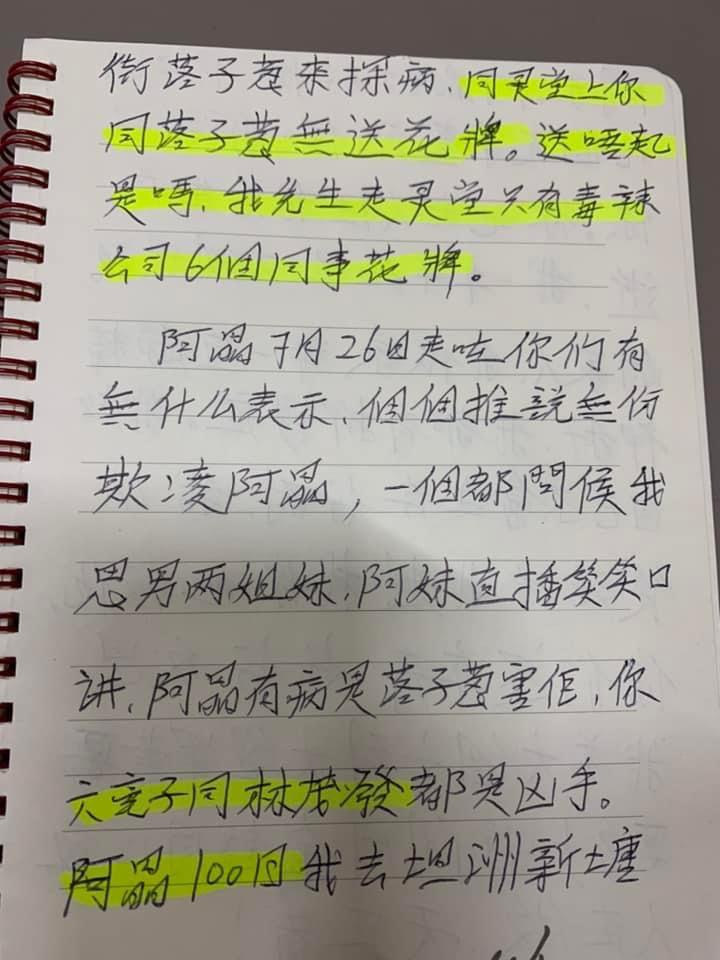 街落子蒽来探病、同灵堂上你
同落子蒽無送花牌。送唔起
是嗎、我先生走灵堂只有毒辣
公司6個同事花牌。
阿晶7月26日走咗你们有
無什么表示、個個推說無份
欺凌阿晶，一個都問候我
思男两姐妹、阿妹直播笑笑口
讲、阿晶有病是落子蒽害佢、你
六亮子同林发發都是凶手。
阿晶100日我去坦洲新墟